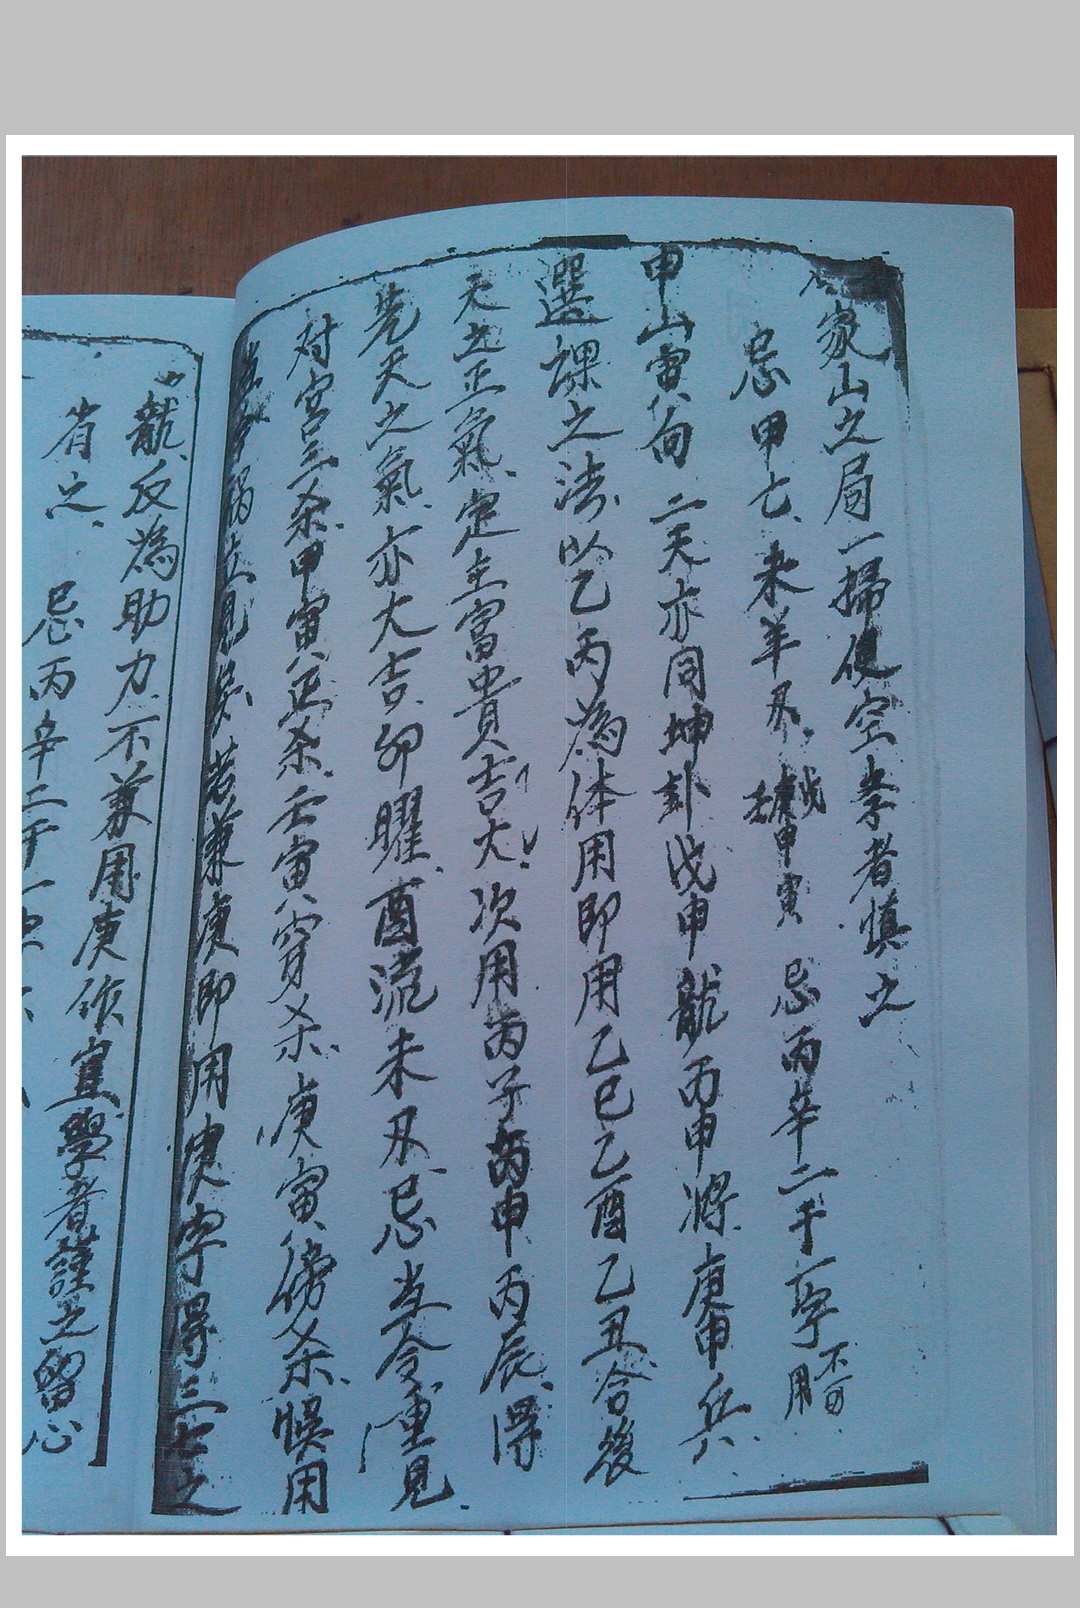 家山之局一掃便空學者慎之
忌甲七、未羊刃、戊庚壬申寅 忌丙辛二干一字不可用
申山寅向 二天亦同坤卦戊申龍丙申將庚申兵
選課之法以乙丙為体用即用乙巳乙酉乙丑合後
天之正氣、定主富貴吉大、次用丙子丙申丙辰、得
先天之氣、亦大吉、卯曜、酉流未刃、忌当令重見
对宮三杀、甲寅八正杀、壬寅八穿杀、庚寅傍杀、悞用
禍立見矣若兼庚即用庚字得三七之
龍、反為助力、不兼用庚作宜、學者謹之留心
省之、 忌丙辛二干一字